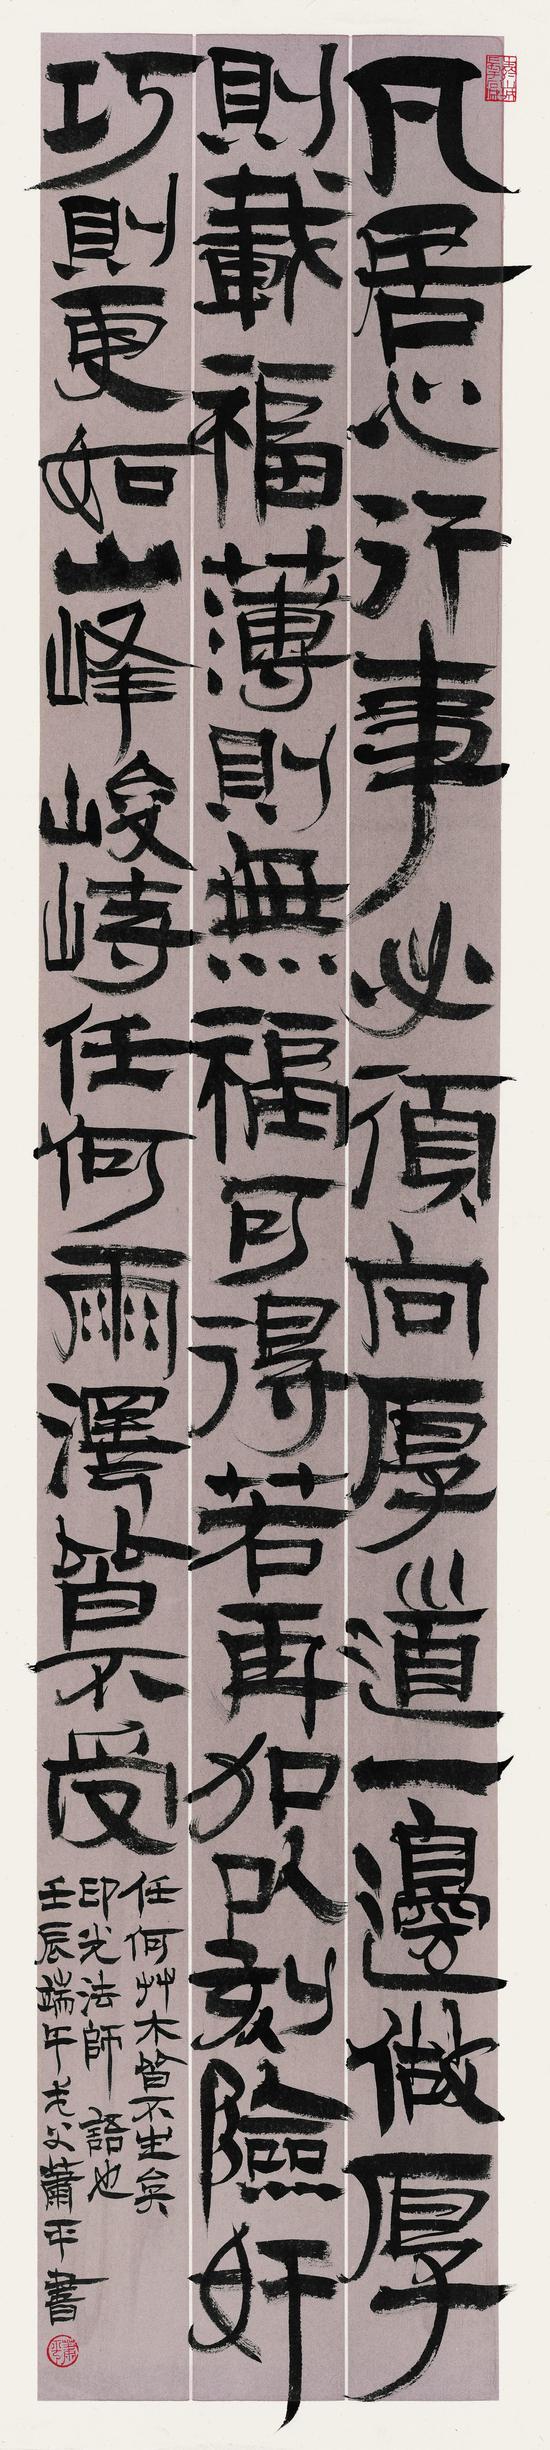 凡居心行事必須向厚道一邊做厚
則載福薄則無福可得若再加以刻險奸
巧則更如山峰峻峙任何雨澤皆不受
任何艸木皆不生矣
印光法師語也
壬辰端午老父蕭平書